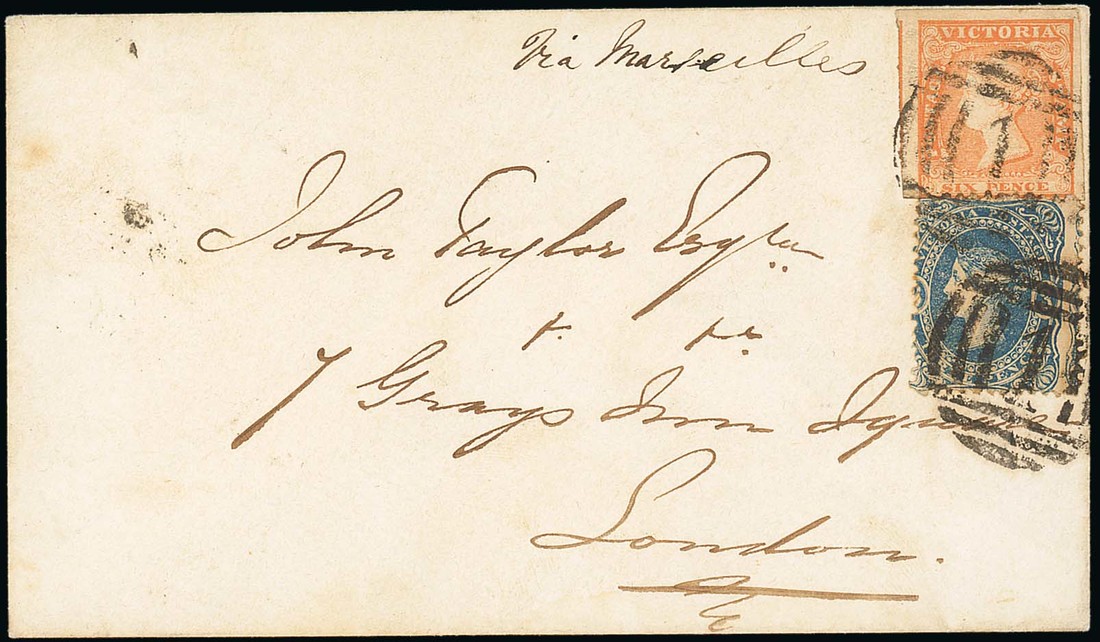 Via Marseilles
VICTORIA
SIX PENCE
VICTORIA POSTAGE
John Taylor Esqre
7 Grays Inn Square
London.